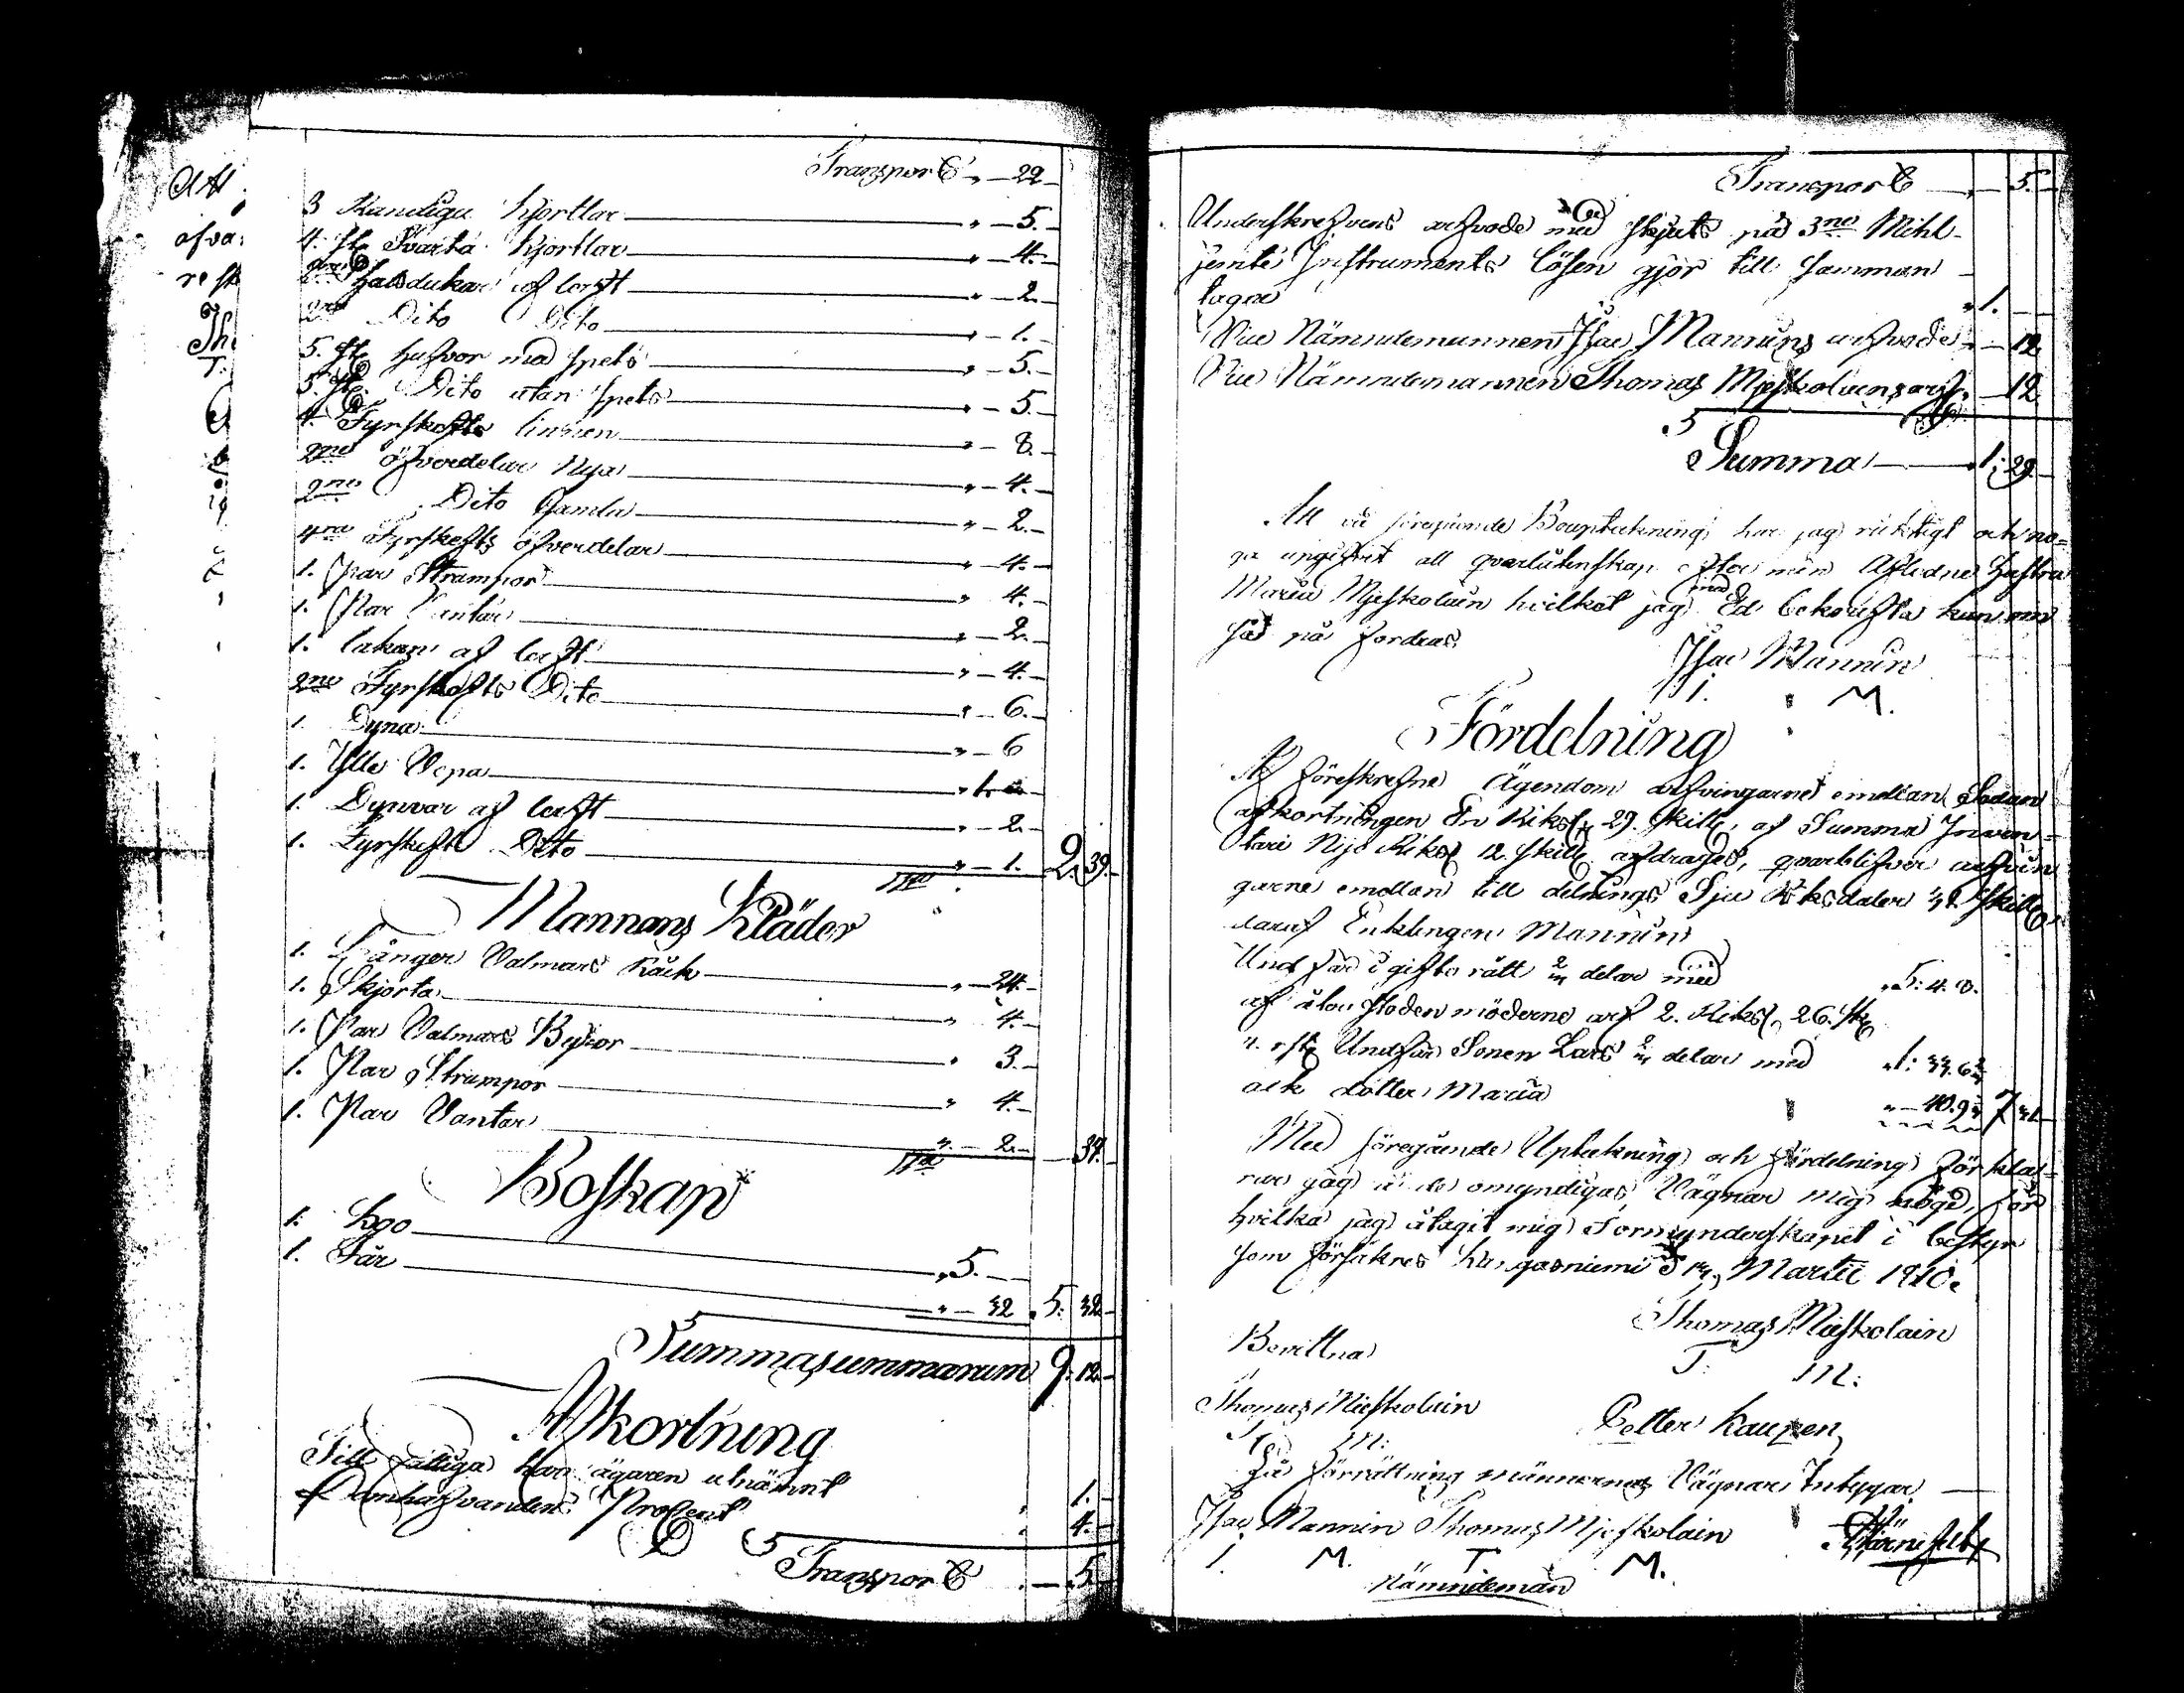 Transport „ — 22 —
3 Randiga Kjortlar „ — 5. —
4. st. Svarta Kjortlar „ — 4. —
2ne Halsdukar af lerft „ — 2. —
2ne Dito Dito „ — 1. —
5. st. hufvor med spets „ — 5. —
5. st. Dito utan spets „ — 5. —
4. Fyrskefts linnen „ — 8. —
2ne öfverdelar Nya „ — 4. —
2ne Dito Gamla „ — 2. —
4ra Fyrskefts öfverdelar „ — 4. —
1. Par Strumpor „ 4. —
1. Par Vantar „ — 2. —
1. lakan af lerft „ — 4. —
2ne Fyrskefts Dito „ — 6. —
1. Dyna „ — 6
1. Ylle Vepa
1. Dynvar af lerft „ — 2. —
1. Fyrskefts Dito „ — 1. — 2. 39. —
Mannens Kläder
1. Långer Valmars Råck „ — 24. —
1. Skjorta „ 4. —
1. Par Valmars Byxor „ 3. —
1. Par Strumpor „ 4. —
1. Par Vantar „ — 2. — — 37. —
Boskap
1. Kgo „ 5. —
1. Får „ — 32 „ 5: 32 —
Summasummarum 9: 12. —
Afkortning
Till fattiga har ägaren utnämnt „ 1. —
Procent „ 4. —
Transport „ — 5. —
Transport — „ — 5. —
Underskrefvens arfvode med skjuts på 3ne Mihl
jemte Instruments lösen gjör till samman
tagne „ 1. —
Vice Nämndemannen Isac Mannins arfvode „ — 12.
Vice Nämndemannen Thomas Mjeskolains arf. — 12.
Summa — „ 1: 29. —
At vid föregående Bouptekning har jag riktigt och no=
ga upgifvit all qvarlåtenskap efter min Aflidne Hustru
Maria Mjeskolain hvilket jag med Ed bekräfta kan om
så på fordras
Isac Mannin
I. M.
Fördelning
Af föreskrefne Ägendom arfvingarne emellan Sedan
afkortningen En Riksd. 29. Skill. af Summa Inven=
tarii Nijo Riksd 12 Skill afdrages, qvarblifver arfvin
garne emellan till delnings Sju Riksdaler 31. Skill
daraf Enklingen Mannin
Undfår i gifto rätt 2/3 delar med „ 5: 4. 8.
af återstoden möderne arf 2. Riksd. 26. sk
4. rst. Undfår Sonen Lars 2/3 delar med „ 1:
ock Dotter Maria „ — 40. 7 31 —
Med föregående Uptekning och fördelning förklar
rar jag å de omyndigas Vägnar mig nögd, för
hvilka jag åtagit mig Förmynderskapet i bestyr
som försäkres Kangasniemi Martii 1810.
Thomas Mieskolain
T: M:
Bevittna
Thomas Mieskolain Petter Kaupen
T. M:
På förrättning männernas Vägnar Intygar
Isac Mannin Thomas Mjeskolain Järnefelt
I. M. T. M.
Nämndemän